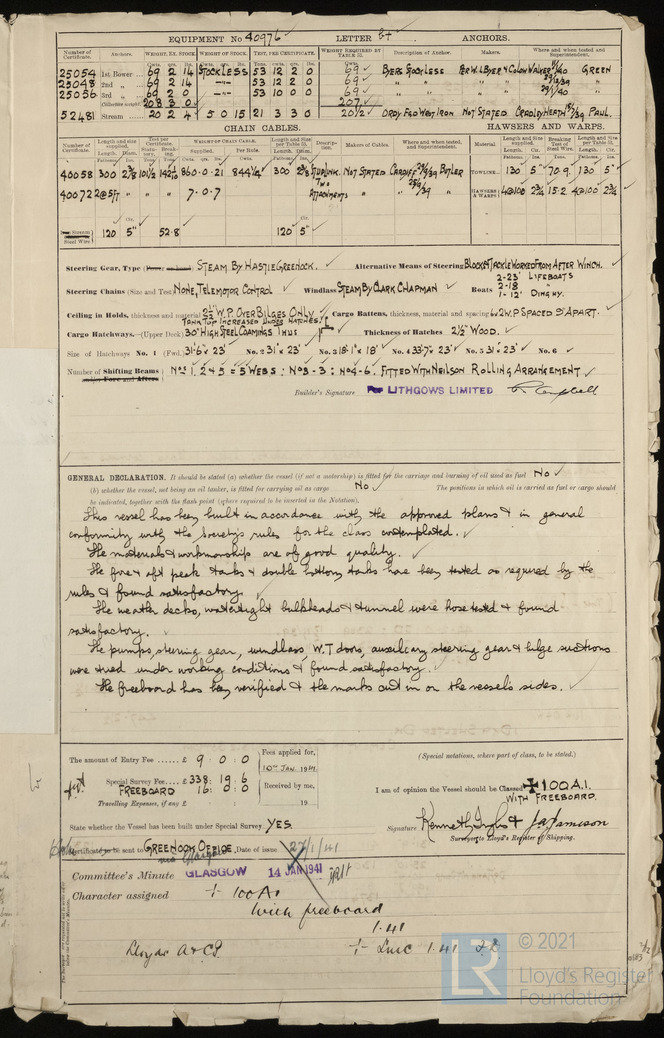 EQUIPMENT No 40976 LETTER ANCHORS.
Number of Certificate. Anchors. WEIGHT, EX. STOCK. WEIGHT OF STOCK. TEST, PER CERTIFICATE. WEIGHT REQUIRED BY TABLE 31. Description of Anchor. Makers. Where and when tested and Superintendent.
25054 1st Bower 69 2 14 STOCKLESS 53 12 2 0 69 BYERS STOCKLESS PER W.L BYER & CO SUN WALKER GREEN
25048 2nd " 69 2 14 53 12 2 0 69
25056 3rd " 69 2 0 53 10 0 0 69
208 3 0 207
52481 Stream 20 2 4 5 0 15 21 3 3 0 20½ ORDY FGD WGT IRON NOT STATED CRADLEY HEATH PAUL.
CHAIN CABLES. HAWSERS AND WARPS.
40058 300 2⅜ 860.0.21 300 STUD LINK. NOT STATED CARDIFF BUTLER TOWLINE 130 5" 70.9 130 5"
40072 2@5FT " " " 7.0.7 TWO ATTACHMENTS " " HAWSERS & WARPS 4@100 2¾ 15.2 4@100 2¾
Steel Wire 120 5" 52.8 120 5"
Steering Gear, Type STEAM BY HASTIE GREENOCK. Alternative Means of Steering BLOCK & TACKLE WORKED FROM AFTER WINCH.
Steering Chains (Size and Test) NONE, TELEMOTOR CONTROL Windlass STEAM BY CLARK CHAPMAN Boats 2-23' LIFEBOATS
2-18' "
1-12' DINGHY.
Ceiling in Holds, thickness and material 2½" W.P. OVER BILGES ONLY Cargo Battens, thickness, material and spacing 6x2 W.P SPACED 9" APART.
TANK TOP INCREASED UNDER HATCHES.
Cargo Hatchways.—(Upper Deck) 30" HIGH STEEL COAMINGS THUS Thickness of Hatches 2½ WOOD.
Size of Hatchways No. 1 (Fwd.) 31'-6" x 23' No. 2 31' x 23' No. 3 18'-1" x 18' No. 4 33'-7" x 23' No. 5 31' x 23' No. 6
Number of Shifting Beams Nos 1, 2 & 5 = 5 WEBS : No 3 - 3 : No 4 - 6. FITTED WITH NEILSON ROLLING ARRANGEMENT
Builder's Signature For LITHGOWS LIMITED
GENERAL DECLARATION. It should be stated (a) whether the vessel (if not a motorship) is fitted for the carriage and burning of oil used as fuel No
(b) whether the vessel, not being an oil tanker, is fitted for carrying oil as cargo No The positions in which oil is carried as fuel or cargo should
be indicated, together with the flash point (where required to be inserted in the Notation).
This vessel has been built in accordance with the approved plans & in general
conformity with the Society's rules for the class contemplated.
The materials & workmanship are of good quality.
The fore & aft peak tanks & double bottom tanks have been tested as required by the
rules & found satisfactory.
The weather decks, watertight bulkheads & tunnel were hose tested & found
satisfactory.
The pumps, steering gear, windlass, W.T doors, auxiliary steering gear & bilge suctions
were tried under working conditions & found satisfactory.
The freeboard has been verified & the marks cut in on the vessel's sides.
The amount of Entry Fee ...... £ 9 : 0 : 0 Fees applied for,
10TH JAN. 1941
Special Survey Fee.... £ 338 : 19 : 6
FREEBOARD 16 : 0 : 0 Received by me,
Travelling Expenses, if any £ 19
(Special notations, where part of class, to be stated.)
I am of opinion the Vessel should be Classed ✠ 100 A.1.
WITH FREEBOARD.
State whether the Vessel has been built under Special Survey. YES.
Signature Kenneth Inglis & J.A. Jamieson
Surveyor to Lloyd's Register of Shipping.
Certificate to be sent to GREENOCK OFFICE Date of issue 27/1/41
via Glasgow
Committee's Minute GLASGOW 14 JAN 1941
Character assigned + 100 A1
With freeboard
1.41
Lloyds A & CP. + LMC 1.41
LR © 2021
Lloyd's Register
Foundation